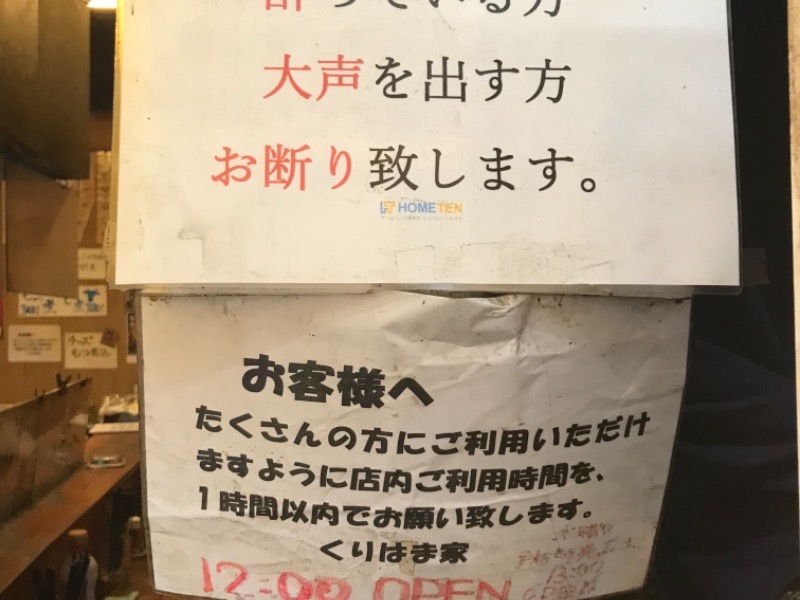 酔っている方
大声を出す方
お断り致します。
HOMETEN
お客様へ
たくさんの方にご利用いただけ
ますように店内ご利用時間を、
1時間以内でお願い致します。
くりはま家
12:00 OPEN
12:00